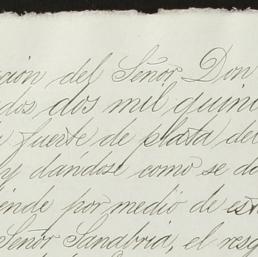 cion del Señor Don
dos dos mil quin
fuerte de plata del
y dandose como se do
ende por medio de est
Señor Sanabria, el resg